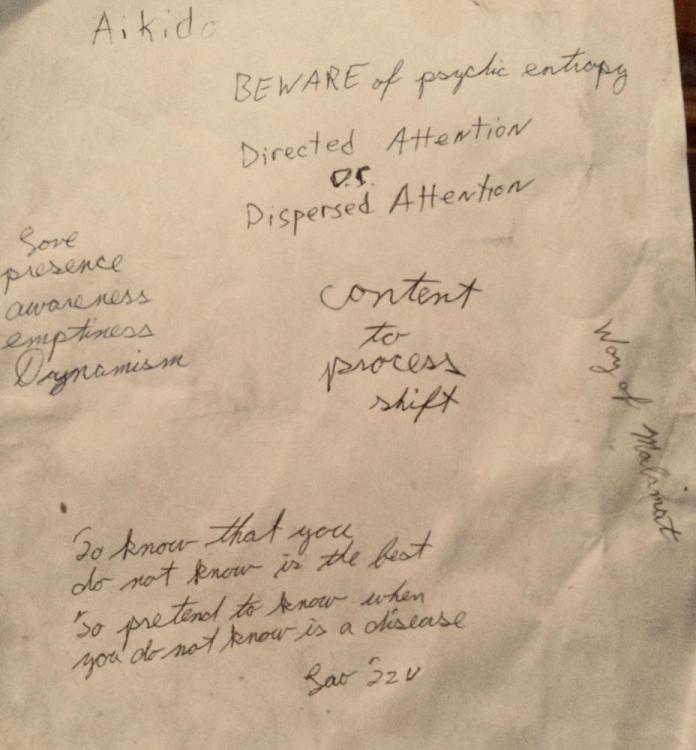 Aikido
BEWARE of psychic entropy
Directed Attention
v.s.
Dispersed Attention
Love
presence
awareness
emptiness
Dynamism
content
to
process
shift
Way of Malamat
To know that you
do not know is the best
To pretend to know when
you do not know is a disease
Lao Tzu